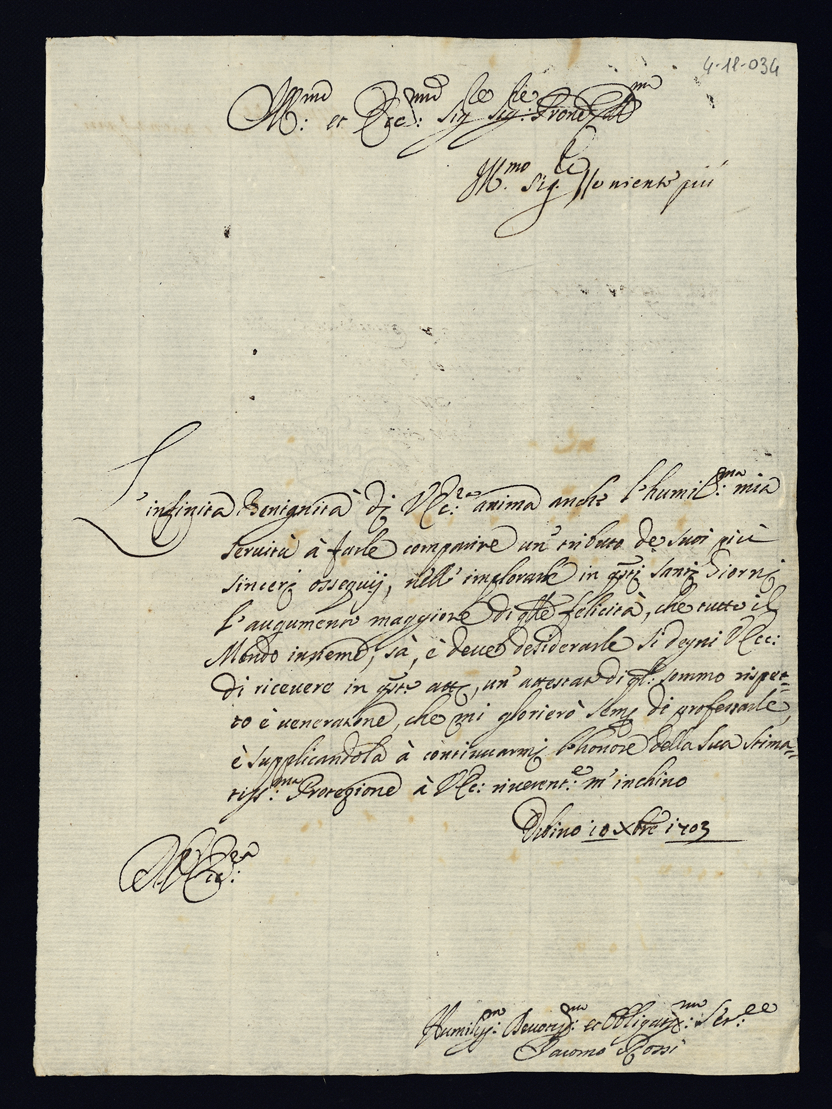 4-18-034
Ill.mo et Ecc.mo Sig.re Sig.re Prone Col.mo
Ill.mo Sig.re niente più
L'infinita Benignità di V.Ecc.za anima anche l'humil.ma mia
servitù à farle comparire un tributo de suoi più
sinceri ossequij, nell'implorarle in q.sti santi Giorni
l'augumento maggiore di q.lle felicità, che tutto il
Mondo insieme, sà, è deve desiderarle si degni V.Ecc:
di ricevere in q.sto atto, un'attestato di q.l: sommo rispet=
to è veneratione, che mi glorierò semp. di professarle,
è supplicandola à continuarmi l'honore della sua stima=
tiss.ma Protezione à V.Ecc: riverent.e m'inchino
Urbino 18 Xbre 1703
V.Ecc.za
Humiliss.mo Devotiss.mo et Obligatiss.mo: Ser.re
Giacomo Rossi